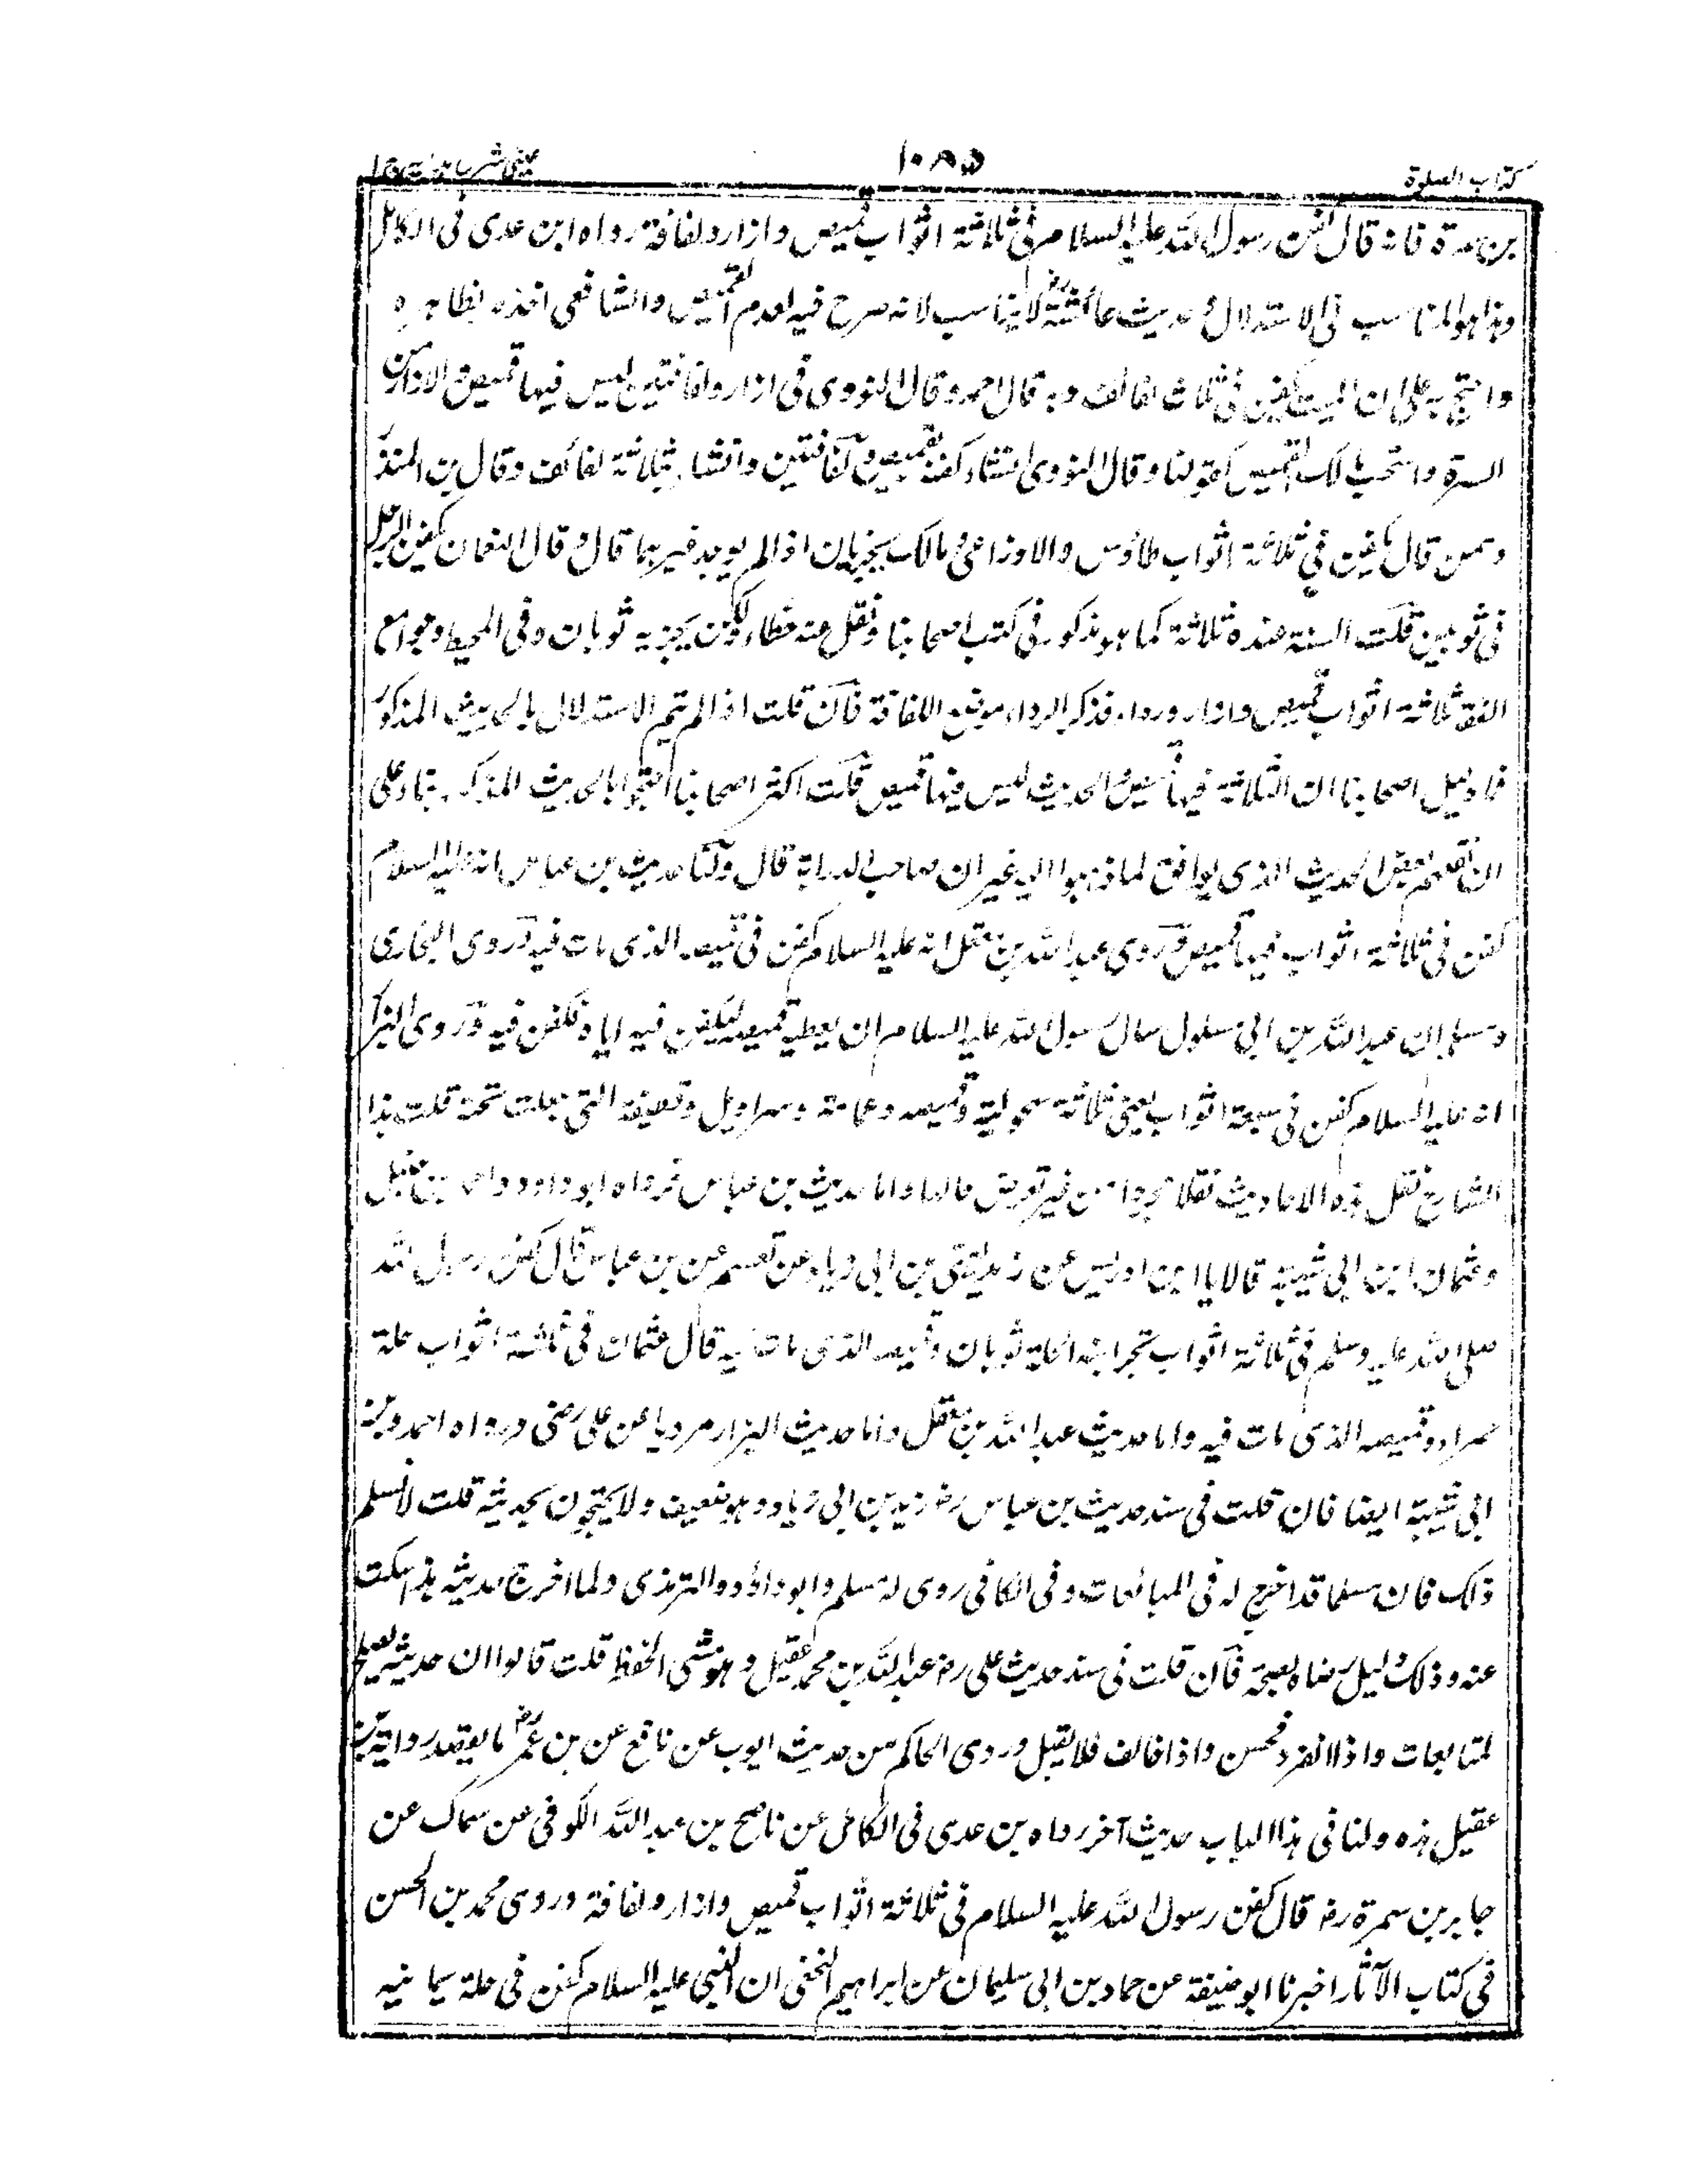 كتاب الصلوة
١٠٨٥
عيني شرح هداية ج ١
بن سمرة فانه قال كفن رسول الله عليه السلام في ثلاثة اثواب قميص وازار ولفافة رواه ابن عدى فى الكامل
وهذا هو المناسب فى الاستدلال و حديث عائشة رض لا يناسب لانه صرح فيه لعدم القميص والشافعى اخذه بظاهره
واحتج به على ان الميت يكفن فى ثلاث لفائف وبه قال احمد وقال النووى فى ازار ولفافتين ليس فيها قميص و الازار من
السرة واستحب مالك القميص كقولنا وقال النووى ان شاء كفنه بقميص و لفافتين وان شاء بثلاثة لفائف وقال بن المنذر
وممن قال يكفن في ثلاثة اثواب طاؤس والاوزاعى و مالك يجزيان اذا لم يوجد غيرهما قال و قال النعمان يكفن الرجل
فى ثوبين قلت السنة عنده ثلاثة كما هو مذكور فى كتب اصحابنا و نقل عنه خطاء ولكن يجزيه ثوبان وفى المحيط وجوامع
الفقه ثلاثة اثواب قميص وازار ورداء فذكر الرداء موضع اللفافة فان قلت اذا لم يتم الاستدلال بالحديث المذكور
فما دليل اصحابنا ان الثلاثة فيها قميص و الحديث ليس فيها قميص قلت اكثر اصحابنا احتجوا بالحديث المذكور بناء على
ان نقلهم بعض الحديث الذى يوافق لما ذهبوا اليه غير ان صاحب الدراية قال ولنا حديث بن عباس انه عليه السلام
كفن فى ثلاثة اثواب فيها قميص و روى عبد الله بن مغفل انه عليه السلام كفن فى قميصه الذى مات فيه و روى البخارى
ومسلم ان عبد الله بن ابى سلول سال رسول الله عليه السلام ان يعطيه قميصه ليكفن فيه اياه فكفن فيه و روى البزار
انه عليه السلام كفن فى سبعة اثواب يعنى ثلاثة سحولية وقميصه وعمامة وسراويل وقطيفة التى جعلت تحته قلت هذا
الشارح نقل هذه الاحاديث نقلا مجردا من غير تعرض مالها واما حديث بن عباس فرواه ابو داود واحمد بن حنبل
وعثمان ابن ابى شيبة قالا انا ابن ادريس عن زيد يعنى بن ابى زياد عن مقسم عن بن عباس قال كفن رسول الله
صلى الله عليه وسلم فى ثلاثة اثواب نجرانية الحلة ثوبان وقميصه الذى مات فيه قال عثمان فى ثلاثة اثواب حلة
حمراء وقميصه الذى مات فيه واما حديث عبد الله بن مغفل واما حديث البزار مرويا عن على رضى ورواه احمد وبن
ابى شيبة ايضا فان قلت فى سند حديث بن عباس رض زيد بن ابى زياد وهو ضعيف ولا يحتجون بحديثه قلت لا نسلم
ذلك فان مسلما قد اخرج له فى المبائعات وفى الكافى روى له مسلم وابو داؤد والترمذى ولما اخرج حديثه هذا سكت
عنه وذلك دليل رضاه بصحة فان قلت فى سند حديث على رض عبد الله بن محمد عقيل وهو سئى الحفظ قلت قالوا ان حديثه يصلح
لمتابعات واذا انفرد فحسن واذا خالف فلا يقبل وروى الحاكم من حديث ايوب عن نافع عن بن عمر رض ما يعضد رواية بن
عقيل هذه ولنا فى هذا الباب حديث آخر رواه بن عدى فى الكامل عن ناصح بن عبد الله الكوفى عن سماك عن
جابر بن سمرة رض قال كفن رسول الله عليه السلام فى ثلاثة اثواب قميص وازار ولفافة وروى محمد بن الحسن
فى كتاب الآثار اخبرنا ابو حنيفة عن حماد بن ابى سليمان عن ابراهيم النخعى ان النبى عليه السلام كفن فى حلة يمانيه